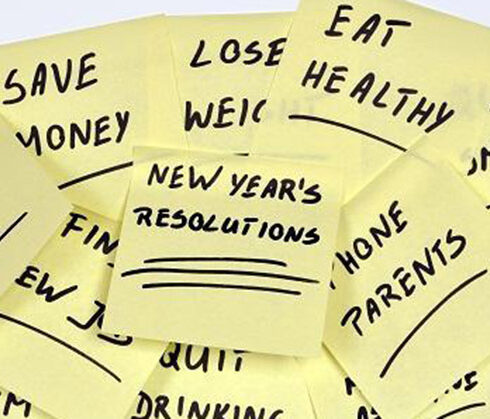 SAVE
MONEY
LOSE
WEIG
EAT
HEALTHY
NEW YEAR'S
RESOLUTIONS
FIN
EW JOB
PHONE
PARENTS
QUIT
DRINKING